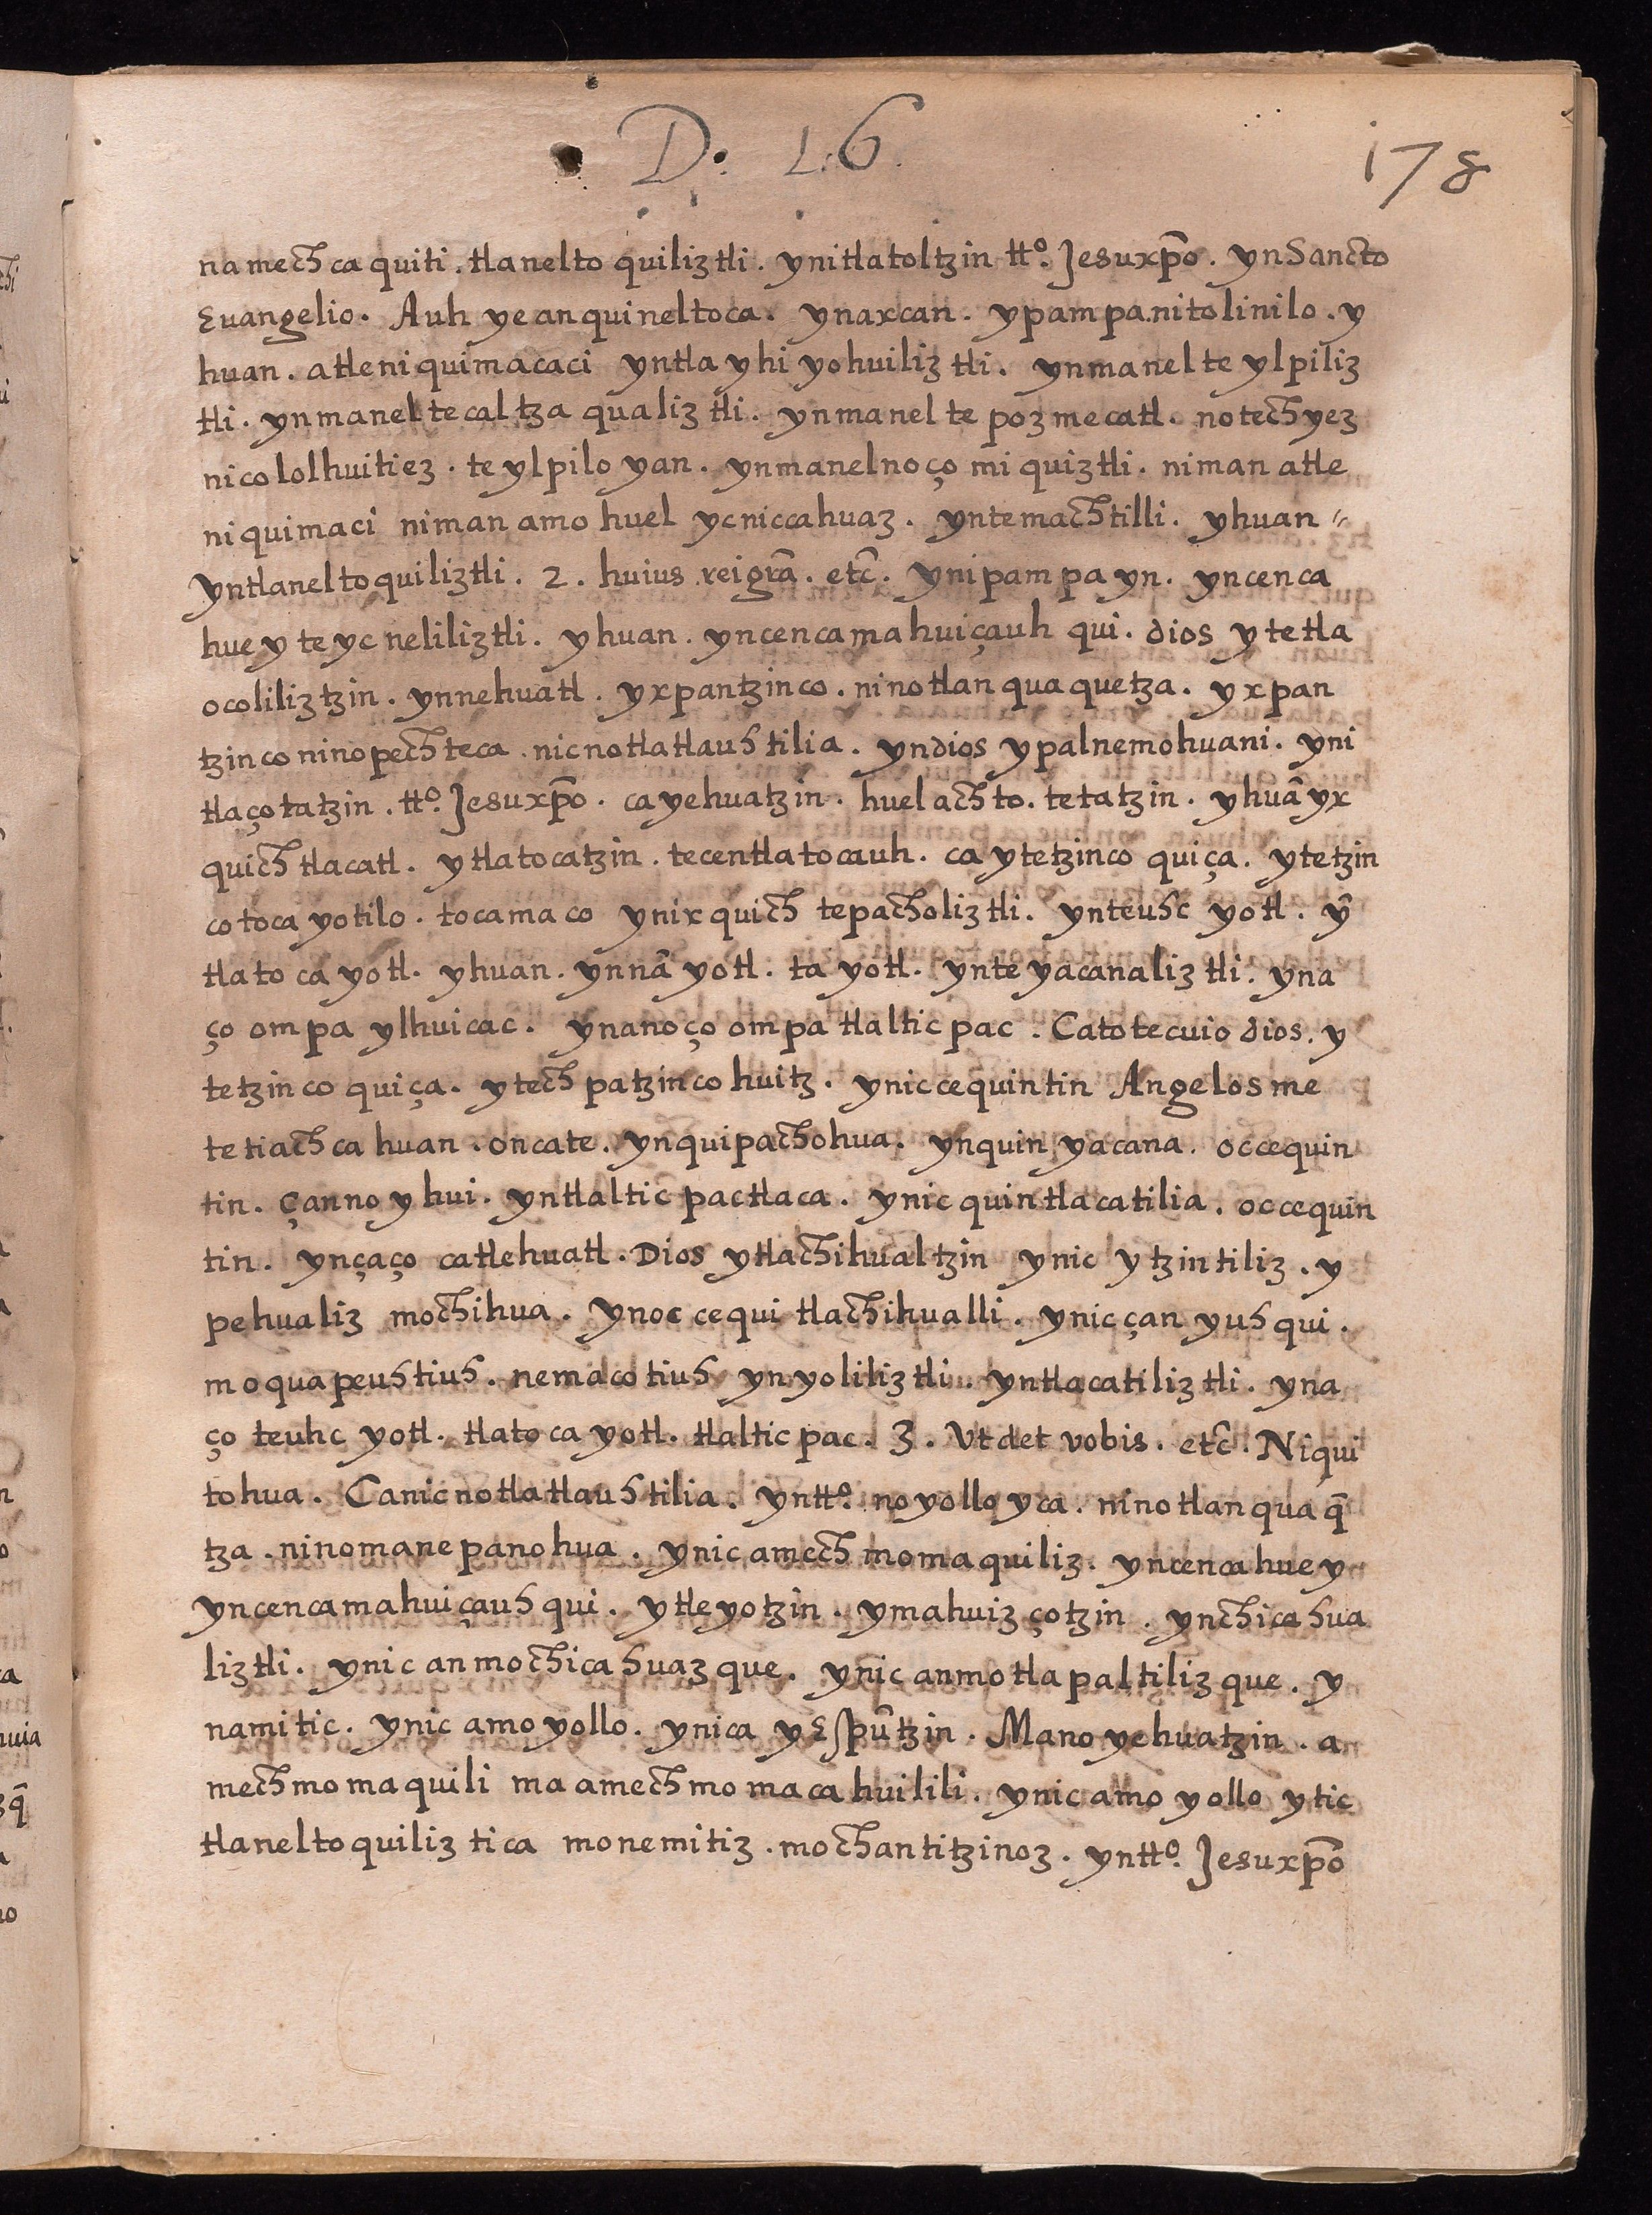 D. 16.
178
namech ca quiti. tlanelto quiliztli. ynitlatoltzin tt.º Jesuxp̄o. yn Sancto
Euangelio. Auh ye anquineltoca. ynaxcan. ypampa.nitolinilo. y
huan. atleniquimacaci yntla yhi yohuiliz tli. ynmanel te ylpiliz
tli. ynmanel tecaltza qualiz tli. ynmanel te poz mecatl. notech yez
nicololhuitiez. te ylpilo yan. ynmanelnoço miquiztli. niman atle
niquimaci niman amo huel ycniccahuaz. yntemachtilli. yhuan〃
yntlaneltoquiliztli. 2. huius reigr̄a. etc̄. ynipampa yn. yncenca
huey te yc neliliztli. yhuan. yncencamahuiçauh qui. dios ytetla
ocoliliztzin. ynnehuatl. yxpantzinco. ninotlanquaquetza. yxpan
tzinco ninopechteca. nicnotlatlauhtilia. yndios ypalnemohuani. yni
tlaçotatzin. tt.º Jesuxp̄o. ca yehuatzin. huel achto. tetatzin. yhuā yx
quich tlacatl. ytlatocatzin. tecentlatocauh. ca ytetzinco quiça. ytetzin
cotoca yotilo. tocamaco ynixquich tepacholiztli. ynteuhc yotl. ȳ
tlato ca yotl. yhuan. ynnā yotl. ta yotl. ynte yacanaliz tli. yna
ço ompa ylhuicac. ynanoço ompa tlaltic pac. Catotecuio dios. y
tetzinco quiça. ytech patzinco huitz. yniccequintin Angelosme
te tiachca huan. oncate. ynquipachohua. ynquin yacana. occequin
tin. Çanno yhui. yntlaltic pactlaca. ynic quintlacatilia. occequin
tin. ynçaço catlehuatl. Dios ytlachihualtzin ynic ytzintiliz. y
pehualiz mochihua. ynoccequi tlachihualli. ynicçan yuhqui.
moquapeuhtiuh. nemacotiuh ynyoliliztli. yntlacatiliztli. yna
ço teuhc yotl. tlato ca yotl. tlaltic pac. 3. Vt det vobis. etc̄. Niqui
tohua. Canicnotlatlauhtilia. yntt.º no yollo yca. ninotlanqua q̄
tza. ninomanepanohua. ynic amech momaquiliz. yncenca huey
yncencamahuiçauhqui. ytleyotzin. ymahuizçotzin. ynchicahua
liztli. ynic anmochicahuazque. ynic anmotlapaltilizque. y
namitic. ynic amo yollo. ynica yespūtzin. Mano yehuatzin. a
mechmomaquili ma amechmomacahuilili. ynic amo yollo ytic
tlaneltoquiliz tica monemitiz. mochantitzinoz. yntt.º Jesuxp̄o